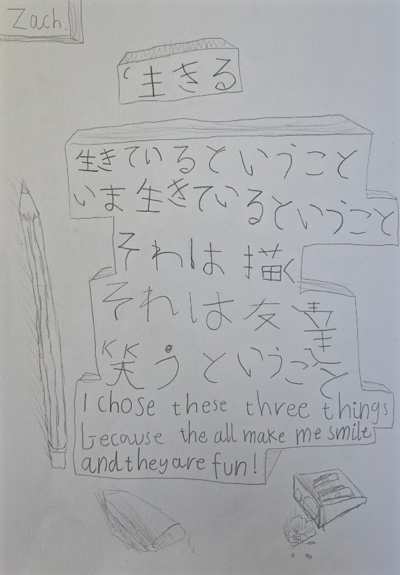 Zach.
生きる
生きているということ
いま生きているということ
それは描く
それは友達
笑うということ
I chose these three things
because the all make me smile
and they are fun!